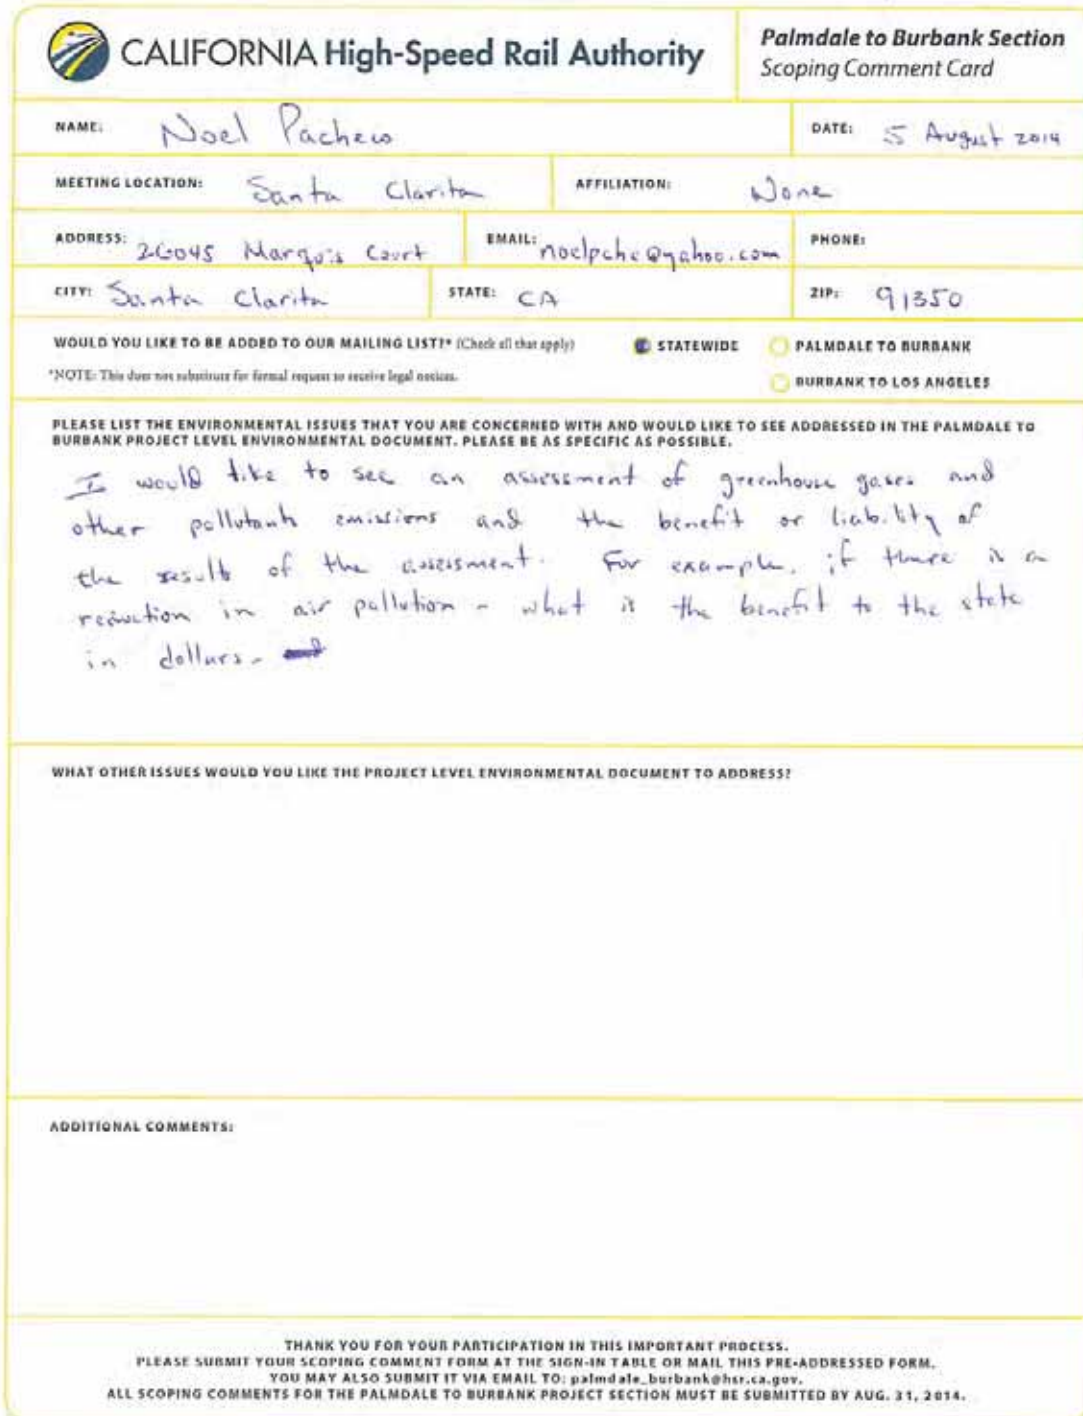 CALIFORNIA High-Speed Rail Authority
Palmdale to Burbank Section
Scoping Comment Card
NAME: Noel Pacheco
DATE: 5 August 2014
MEETING LOCATION: Santa Clarita
AFFILIATION: None
ADDRESS: 26045 Marquis Court
EMAIL: noelpche@yahoo.com
PHONE:
CITY: Santa Clarita
STATE: CA
ZIP: 91350
WOULD YOU LIKE TO BE ADDED TO OUR MAILING LIST?* (Check all that apply)
STATEWIDE
PALMDALE TO BURBANK
*NOTE: This does not substitute for formal request to receive legal notices.
BURBANK TO LOS ANGELES
PLEASE LIST THE ENVIRONMENTAL ISSUES THAT YOU ARE CONCERNED WITH AND WOULD LIKE TO SEE ADDRESSED IN THE PALMDALE TO
BURBANK PROJECT LEVEL ENVIRONMENTAL DOCUMENT. PLEASE BE AS SPECIFIC AS POSSIBLE.
I would like to see an assessment of greenhouse gases and
other pollutants emissions and the benefit or liability of
the results of the assessment. For example, if there is a
reduction in air pollution - what is the benefit to the state
in dollars.
WHAT OTHER ISSUES WOULD YOU LIKE THE PROJECT LEVEL ENVIRONMENTAL DOCUMENT TO ADDRESS?
ADDITIONAL COMMENTS:
THANK YOU FOR YOUR PARTICIPATION IN THIS IMPORTANT PROCESS.
PLEASE SUBMIT YOUR SCOPING COMMENT FORM AT THE SIGN-IN TABLE OR MAIL THIS PRE-ADDRESSED FORM.
YOU MAY ALSO SUBMIT IT VIA EMAIL TO: palmdale_burbank@hsr.ca.gov.
ALL SCOPING COMMENTS FOR THE PALMDALE TO BURBANK PROJECT SECTION MUST BE SUBMITTED BY AUG. 31, 2014.